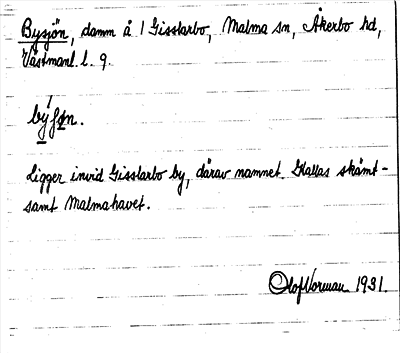 Bysjön, damm å 1 Gisslarbo, Malma sn, Åkerbo hd,
Västmanl. l. 9.
býſøn.
Ligger invid Gisslarbo by, därav namnet. Kallas skämt-
samt Malmahavet.
Olof Norman 1931.